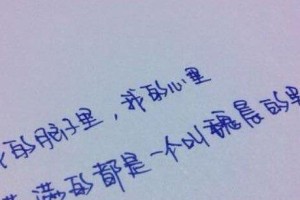 的脑子里，我的心里
满的都是一个叫魏晨的